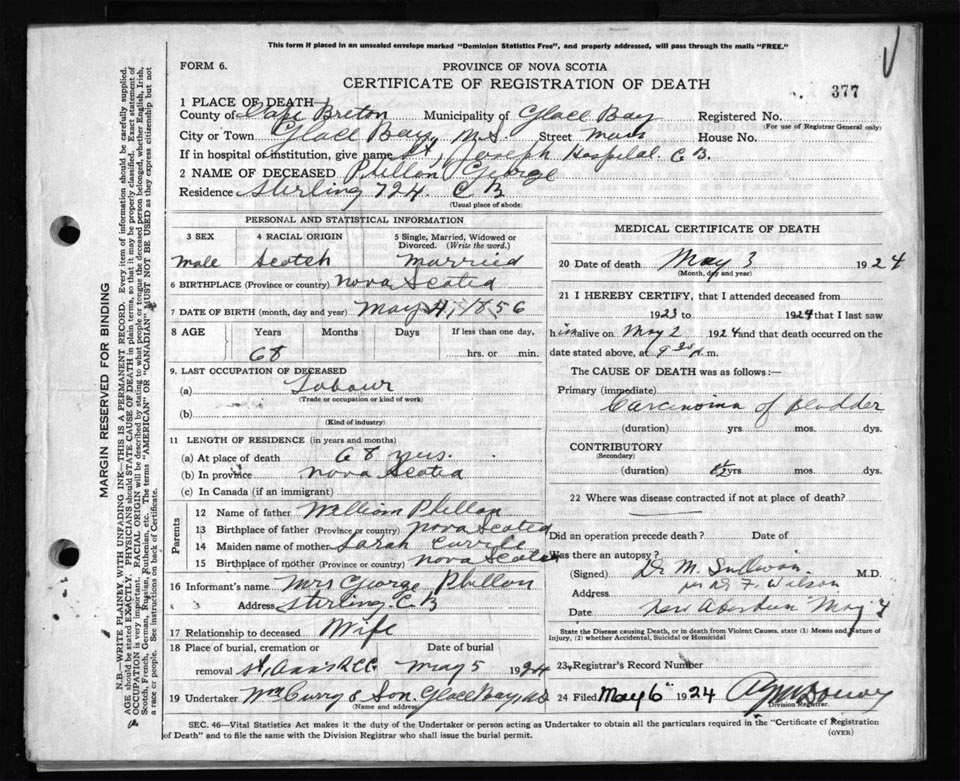 This form if placed in an unsealed envelope marked "Dominion Statistics Free", and properly addressed, will pass through the mails "FREE."
FORM 6.
PROVINCE OF NOVA SCOTIA
CERTIFICATE OF REGISTRATION OF DEATH
377
1 PLACE OF DEATH—
County of Cape Breton Municipality of Glace Bay Registered No.
(For use of Registrar General only)
City or Town Glace Bay, N.S. Street Main House No.
If in hospital or institution, give name St, Joseph Hospital C B.
2 NAME OF DECEASED Phillon George
Residence Sterling 724. C B
(Usual place of abode)
PERSONAL AND STATISTICAL INFORMATION
3 SEX
4 RACIAL ORIGIN
5 Single, Married, Widowed or Divorced. (Write the word.)
Male Scotch Married
6 BIRTHPLACE (Province or country) Nova Scotia
7 DATE OF BIRTH (month, day and year) May 4, 1856
8 AGE Years Months Days If less than one day,
68 hrs. or min.
9. LAST OCCUPATION OF DECEASED
(a) Labour
(Trade or occupation or kind of work)
(b)
(Kind of industry)
11 LENGTH OF RESIDENCE (in years and months)
(a) At place of death 68 yrs.
(b) In province Nova Scotia
(c) In Canada (if an immigrant)
Parents
12 Name of father William Phillon
13 Birthplace of father (Province or country) Nova Scotia
14 Maiden name of mother Sarah
15 Birthplace of mother (Province or country) Nova Scotia
16 Informant's name Mrs George Phillon
Address Sterling. C B
17 Relationship to deceased Wife
18 Place of burial, cremation or removal Date of burial
St. Ann's R C C May 5 1924
19 Undertaker Wm Curry & Son. Glace Bay N.S
(Name and address)
MEDICAL CERTIFICATE OF DEATH
20 Date of death May 3 1924
(Month, day and year)
21 I HEREBY CERTIFY, that I attended deceased from
1923 to 1924 that I last saw
him alive on May 2 1924 and that death occurred on the
date stated above, at 9 30 p.m.
The CAUSE OF DEATH was as follows:—
Primary (immediate)
Carcinoma of Bladder
(duration) yrs. mos. dys.
CONTRIBUTORY
(Secondary)
(duration) yrs. mos. dys.
22 Where was disease contracted if not at place of death?
Did an operation precede death? Date of
Was there an autopsy?
(Signed) Dr M. Sullivan M.D.
per Dr F. Wilson
Address
Date New Aberdeen May 4
State the Disease causing Death, or in death from Violent Causes, state (1) Means and Nature of Injury, (2) whether Accidental, Suicidal or Homicidal
23 Registrar's Record Number
24 Filed May 6" 1924
Division Registrar
SEC. 46—Vital Statistics Act makes it the duty of the Undertaker or person acting as Undertaker to obtain all the particulars required in the "Certificate of Registration of Death" and to file the same with the Division Registrar who shall issue the burial permit.
(OVER)
MARGIN RESERVED FOR BINDING
N.B.—WRITE PLAINLY, WITH UNFADING INK—THIS IS A PERMANENT RECORD. Every item of information should be carefully supplied.
AGE should be stated EXACTLY. PHYSICIANS should STATE CAUSE OF DEATH in plain terms, so that it may be properly classified. Exact statement of
OCCUPATION is very important. RACIAL ORIGIN will be described by stating to what people or tongue the deceased person belonged, whether English, Irish,
Scotch, French, German, Russian, Ruthenian, etc. The terms "AMERICAN" OR "CANADIAN" MUST NOT BE USED as they express citizenship but not
a race or people. See instructions on back of Certificate.